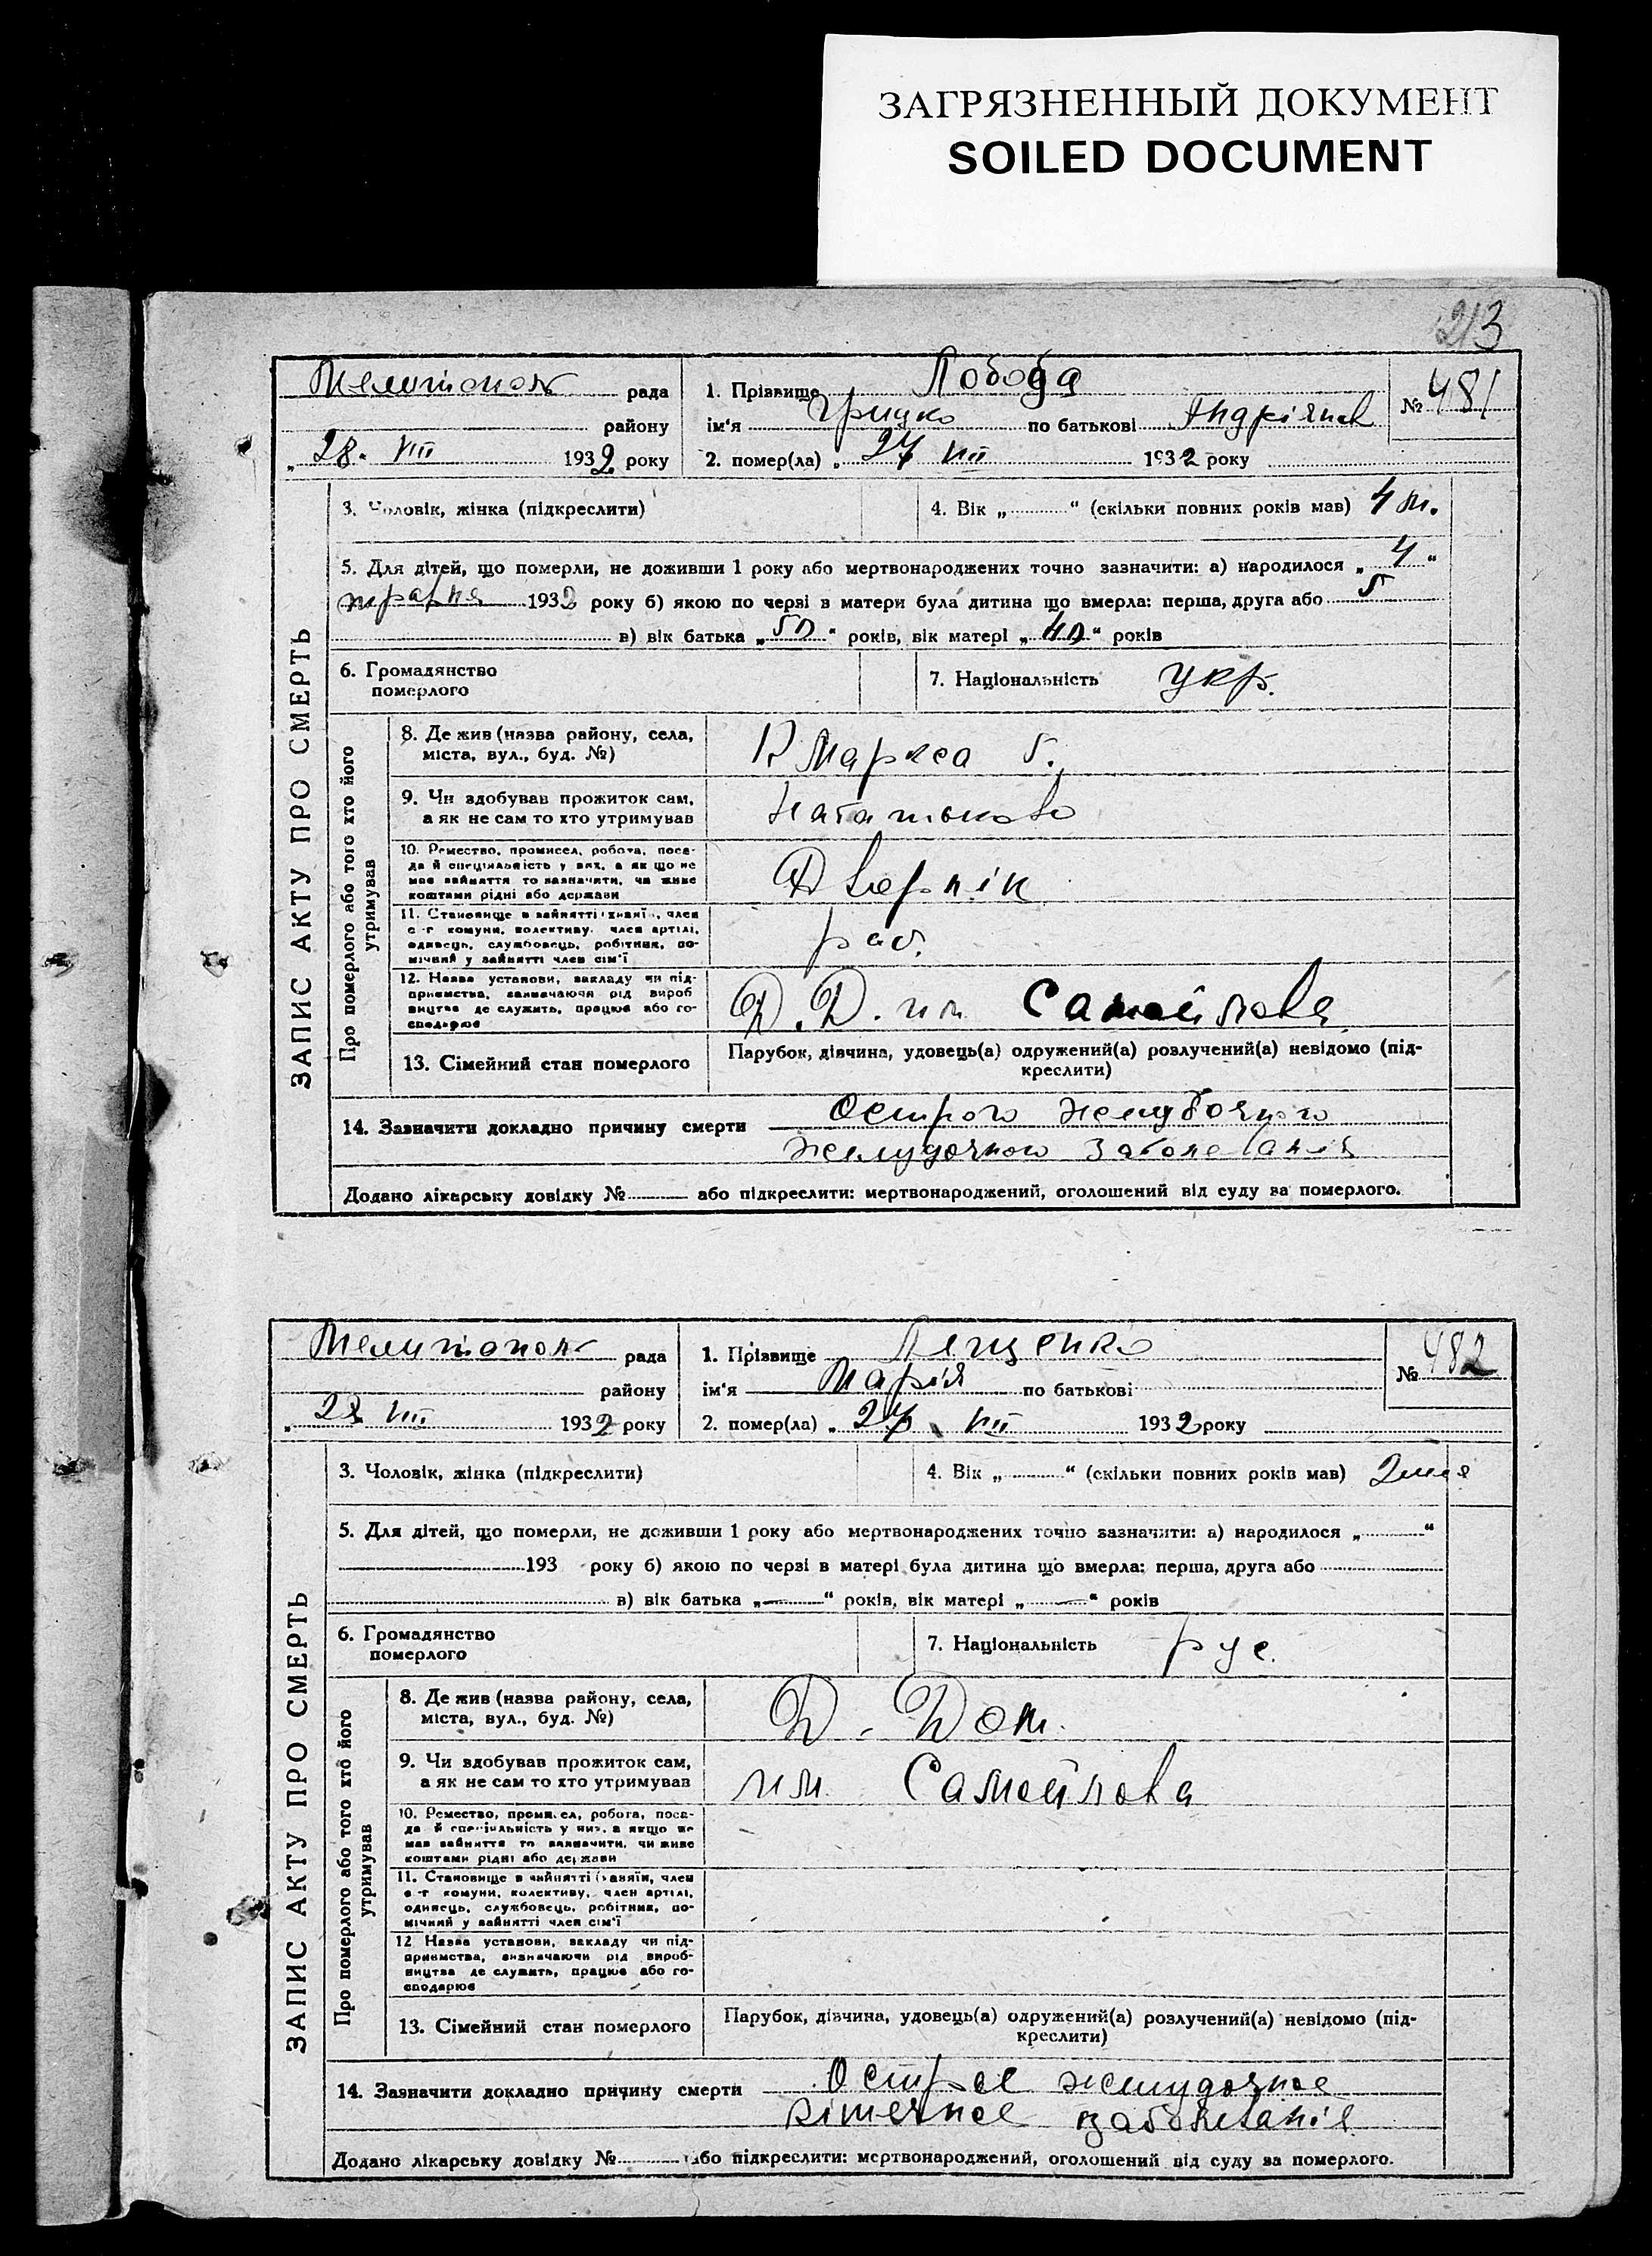 ЗАГРЯЗНЕННЫЙ ДОКУМЕНТ
SOILED DOCUMENT
213
ЗАПИС АКТУ ПРО СМЕРТЬ
Мелитополь рада
району
„ 28. VIII 1932 року
1. Прізвище Лобода
ім'я Грицко по батькові Андрієвич
№ 481
2. помер(ла) „ 27 VIII 1932 року
3. Чоловік, жінка (підкреслити)
4. Вік „ “ (скільки повних років мав) 4 м.
5. Для дітей, що померли, не доживши 1 року або мертвонароджених точно зазначити: а) народилося „ 4 “
1932 року б) якою по черзі в матери була дитина що вмерла: перша, друга або 5
в) вік батька „ 50 “ років, вік матері „ 40 “ років
6. Громадянство
померлого
7. Національність укр.
Про померлого або того хто його
утримував
8. Де жив (назва району, села,
міста, вул., буд. №)
К Маркса 5.
9. Чи здобував прожиток сам,
а як не сам то хто утримував
10. Ремество, промисел, робота, поса-
да й специяльність у них, а як що не
мав зайняття то зазначити, чи живе
коштами рідні або держави
Дворнік
11. Становище в зайнятті (хазяїн, член
с-г комуни, колективу, член артілі,
одинець, службовець, робітник, по-
мічний у зайнятті член сім'ї
раб.
12. Назва установи, закладу чи під-
приємства, зазначаючи рід вироб
ництва де служить, працює або го-
сподарює
Д. Д. им Самойлова
13. Сімейний стан померлого
Парубок, дівчина, удовець(а) одружений(а) розлучений(а) невідомо (під-
креслити)
14. Зазначити докладно причину смерти Острого желудочного
желудочного заболеванія
Додано лікарську довідку № або підкреслити: мертвонароджений, оголошений від суду за померлого.
ЗАПИС АКТУ ПРО СМЕРТЬ
Мелитополь рада
району
„ 28 VIII 1932 року
1. Прізвище Лещенко
ім'я Марія по батькові
№ 482
2. помер(ла) „ 27 VIII 1932 року
3. Чоловік, жінка (підкреслити)
4. Вік „ “ (скільки повних років мав)
5. Для дітей, що померли, не доживши 1 року або мертвонароджених точно зазначити: а) народилося „ “
193 року б) якою по черзі в матері була дитина що вмерла: перша, друга або
в) вік батька „ — “ років, вік матері „ — “ років
6. Громадянство
померлого
7. Національність рус.
Про померлого або того хто його
утримував
8. Де жив (назва району, села,
міста, вул., буд. №)
Д. Дом.
9. Чи здобував прожиток сам,
а як не сам то хто утримував
им. Самойлова
10. Ремество, промисел, робота, поса-
да й специяльність у них, а якщо не
мав зайняття то зазначити, чи живе
коштами рідні або держави
11. Становище в зайнятті (хазяїн, член
с-г комуни, колективу, член артілі,
одинець, службовець, робітник, по-
мічний у зайнятті член сім'ї
12. Назва установи, закладу чи під-
приємства, визначаючи рід вироб-
ництва де служить, працює або го-
сподарює
13. Сімейний стан померлого
Парубок, дівчина, удовець(а) одружений(а) розлучений(а) невідомо (під-
креслити)
14. Зазначити докладно причину смерти Острое желудочное
кішечное заболеваніе
Додано лікарську довідку № або підкреслити: мертвонароджений, оголошений від суду за померлого.